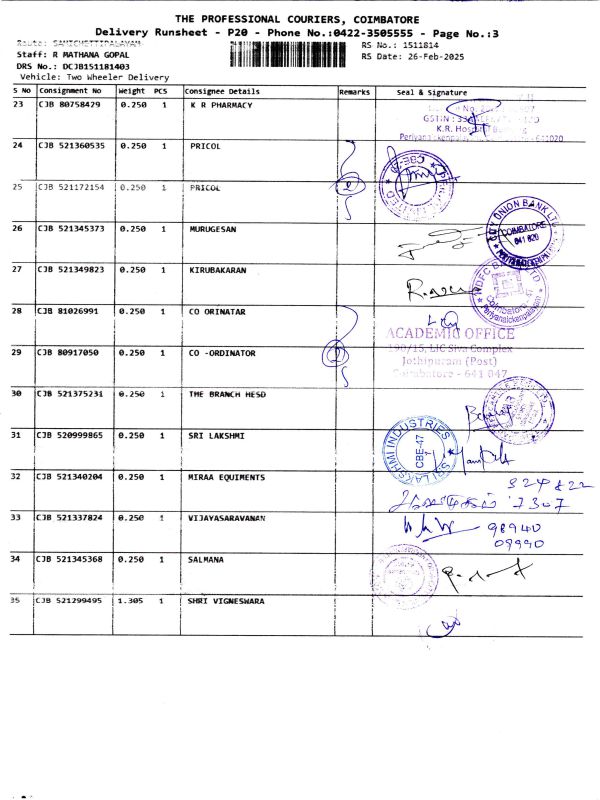 THE PROFESSIONAL COURIERS, COIMBATORE
Delivery Runsheet - P20 - Phone No.:0422-3505555 - Page No.:3
Route: SAMICHETTIPALAYAM
RS No.: 1511814
Staff: R MATHANA GOPAL
RS Date: 26-Feb-2025
DRS No.: DCJB151181403
Vehicle: Two Wheeler Delivery
S No Consignment No Weight PCS Consignee Details Remarks Seal & Signature
23 CJB 80758429 0.250 1 K R PHARMACY
K.R. Hospital
641020
24 CJB 521360535 0.250 1 PRICOL
25 CJB 521172154 0.250 1 PRICOL 2
26 CJB 521345373 0.250 1 MURUGESAN
UNION BANK LTD
COIMBATORE
641 020
27 CJB 521349823 0.250 1 KIRUBAKARAN
HDFC BANK LTD
Coimbatore-47
Periyanaickenpalayam
28 CJB 81026991 0.250 1 CO ORINATAR
ACADEMIC OFFICE
190/15, LIC Siva Complex
Jothipuram (Post)
Coimbatore - 641 047
29 CJB 80917050 0.250 1 CO -ORDINATOR
30 CJB 521375231 0.250 1 THE BRANCH HESD
31 CJB 520999865 0.250 1 SRI LAKSHMI
SRI LAKSHMI INDUSTRIES
CBE-47
32 CJB 521340204 0.250 1 MIRAA EQUIMENTS
324822
7307
33 CJB 521337824 0.250 1 VIJAYASARAVANAN
98940
09990
34 CJB 521345368 0.250 1 SALMANA
35 CJB 521299495 1.305 1 SHRI VIGNESWARA